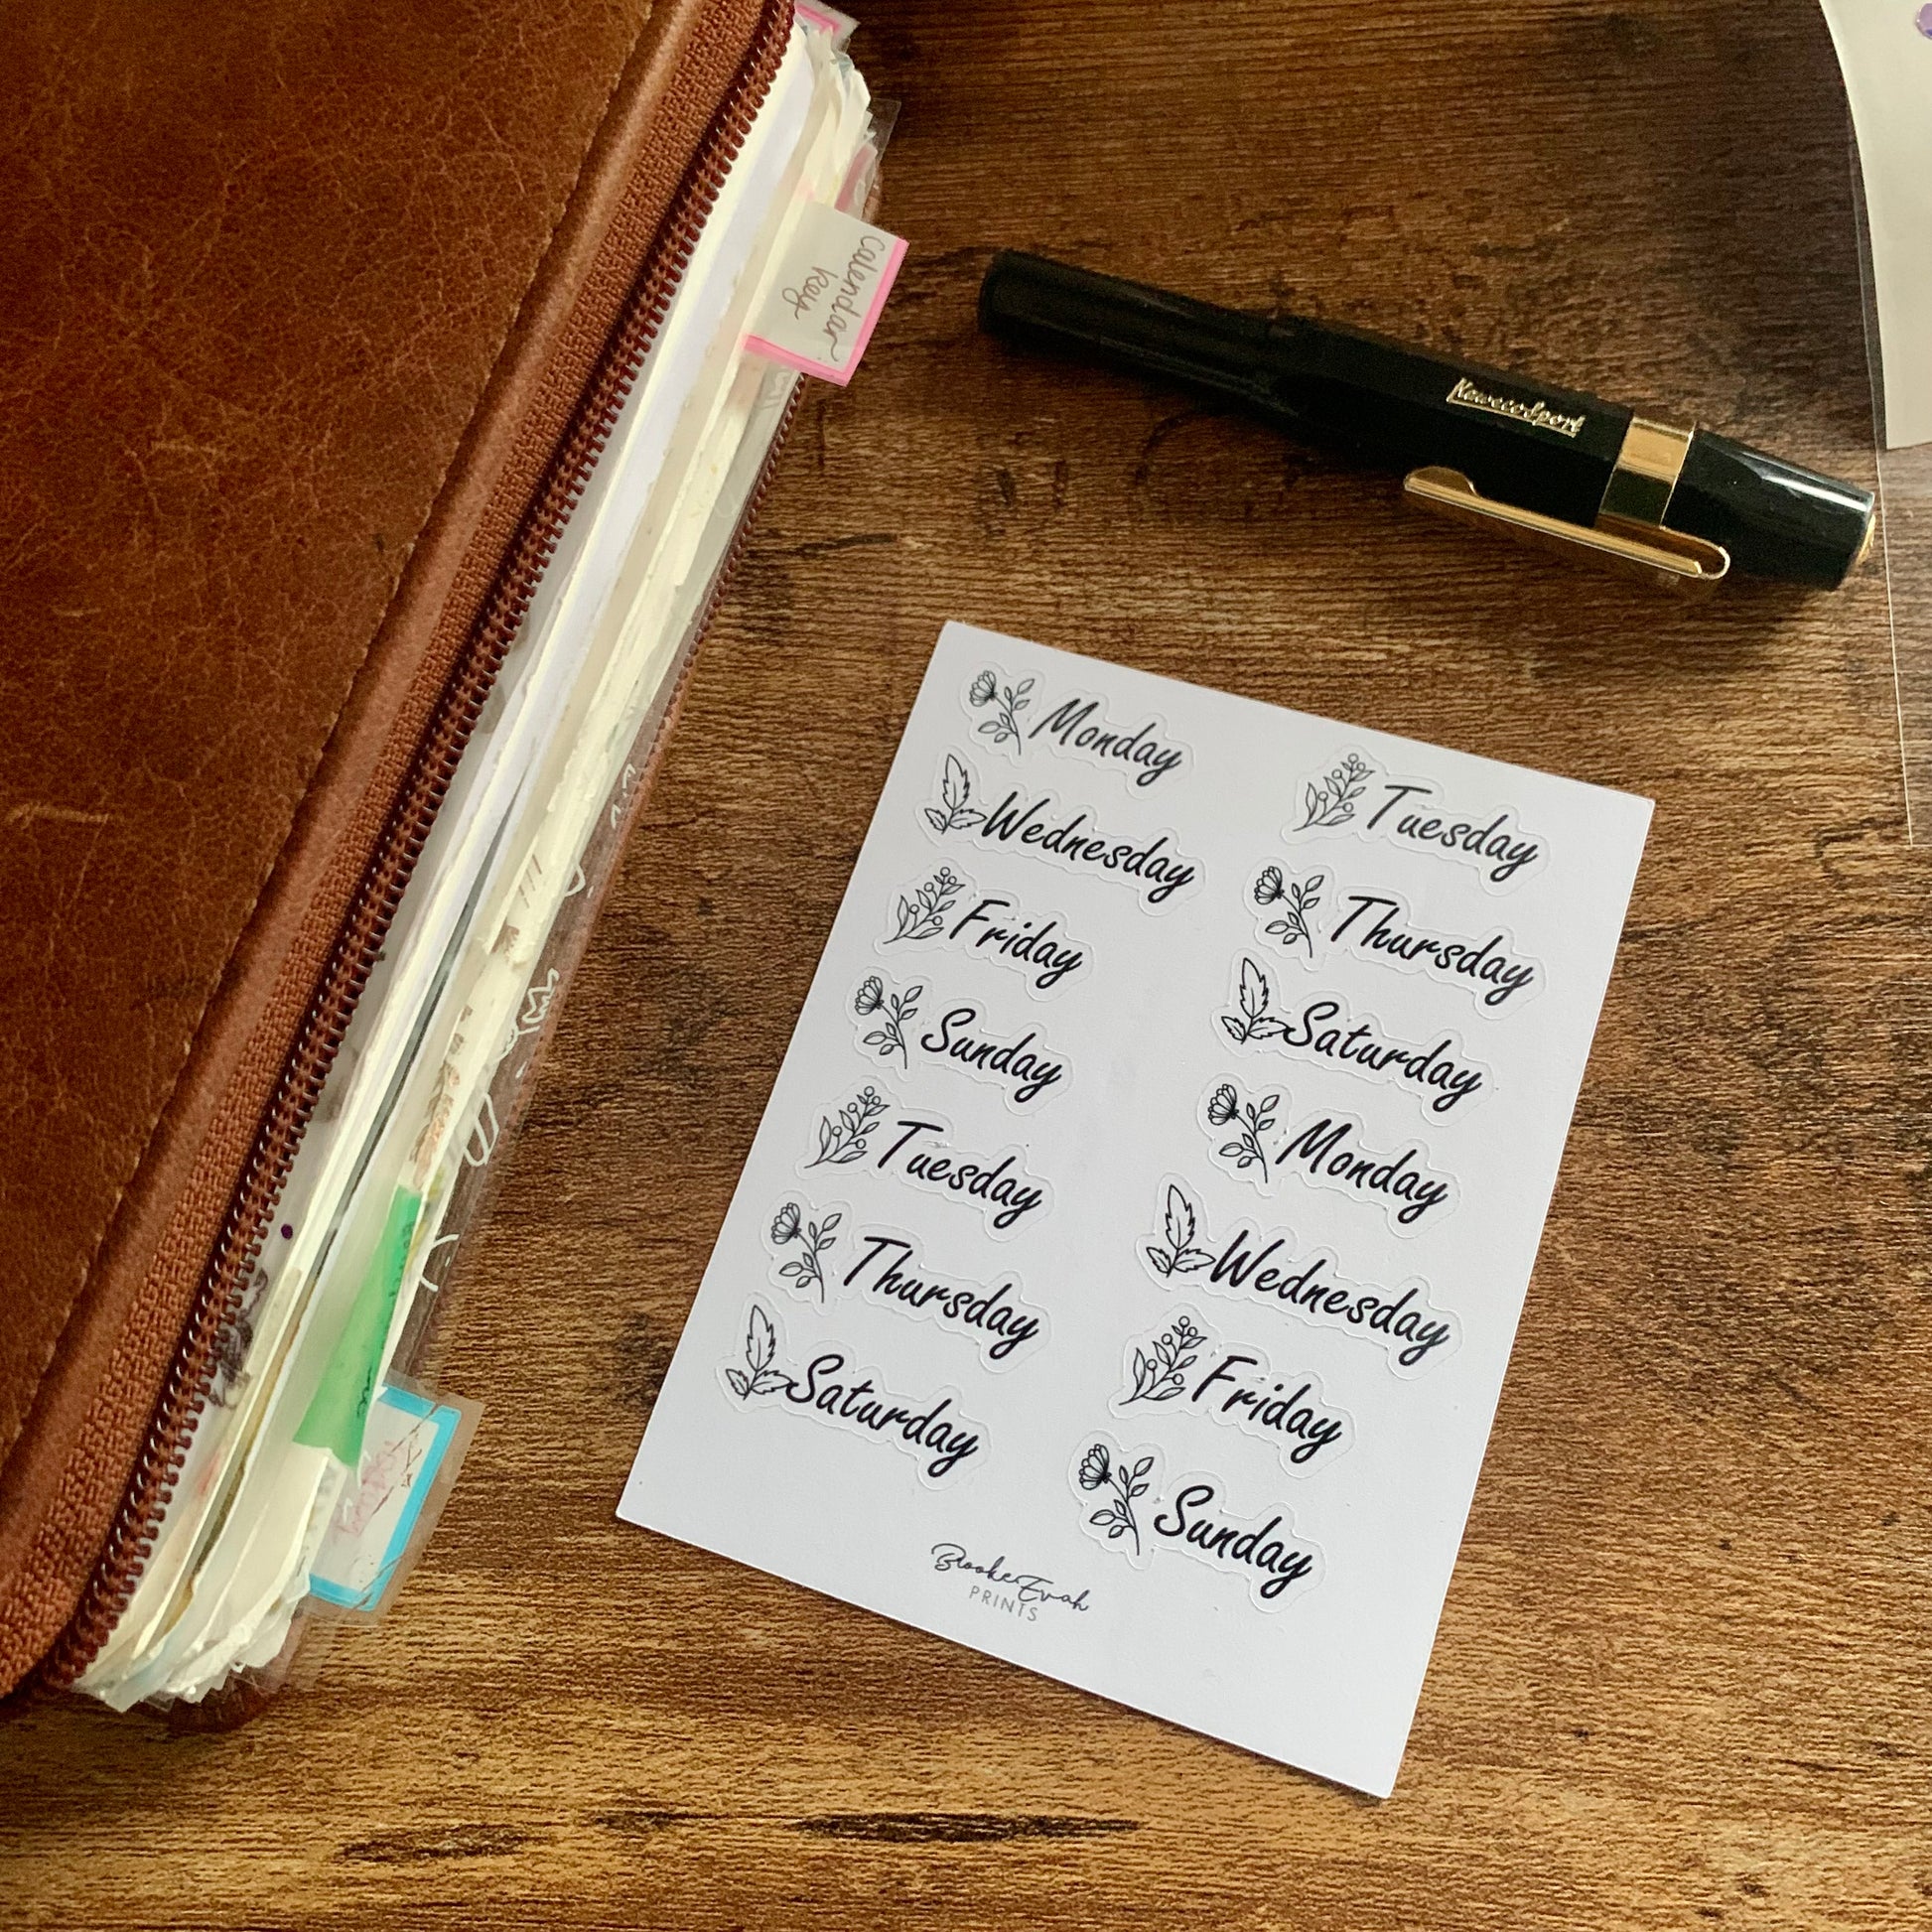 Calendar
Key
KawecoSport
Monday
Tuesday
Wednesday
Thursday
Friday
Saturday
Sunday
Monday
Tuesday
Wednesday
Thursday
Friday
Saturday
Sunday
BrookeEvah
PRINTS